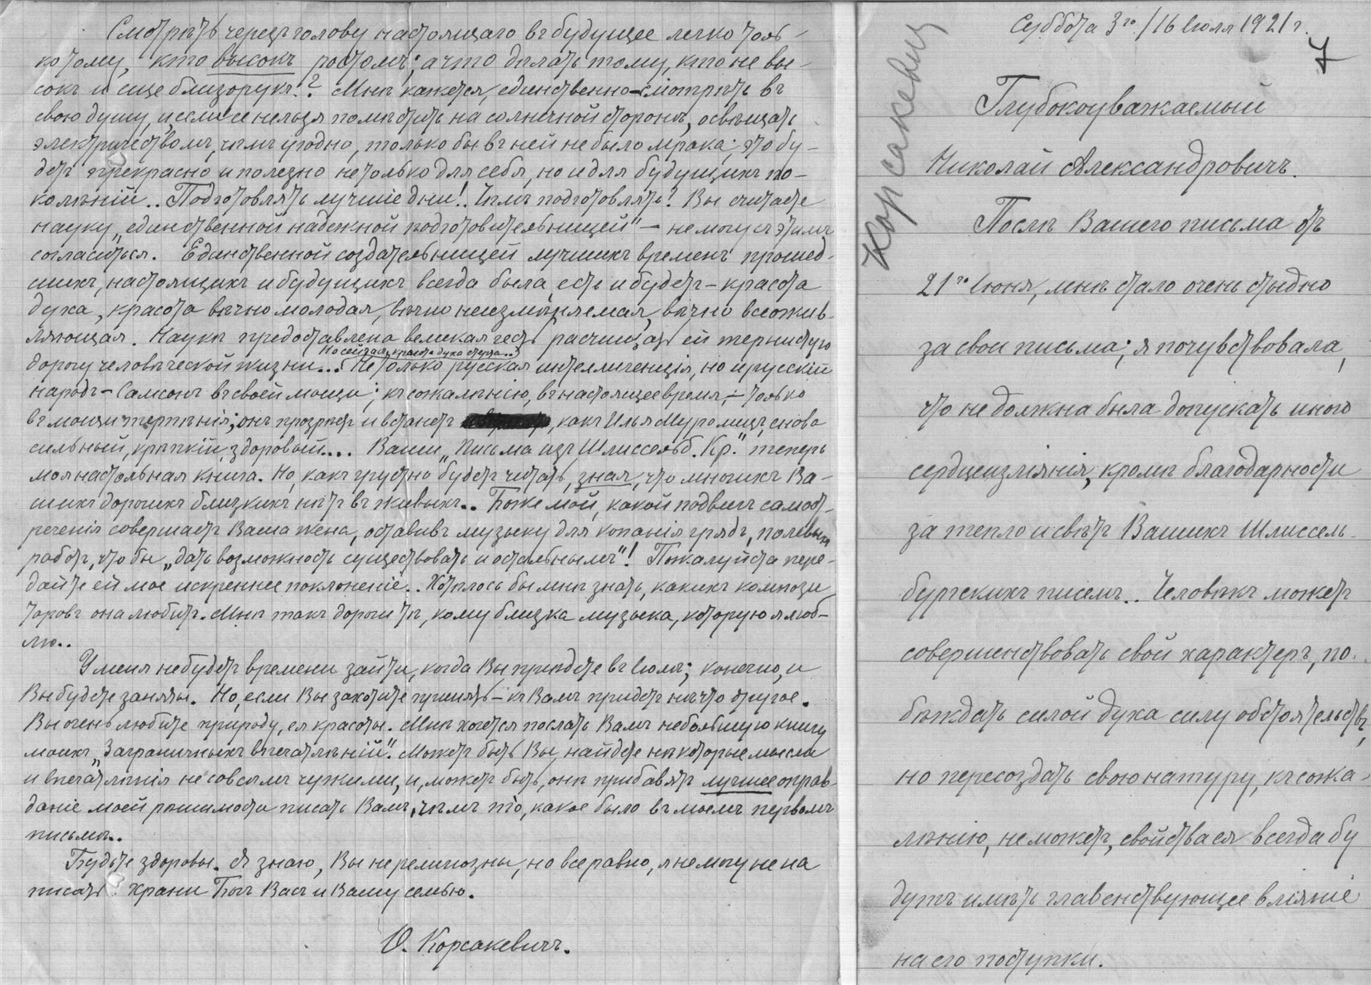 Смотрѣть черезъ голову настоящаго въ будущее легко толь-
ко тому, кто высокъ ростомъ; а что дѣлать тому, кто не вы-
сокъ и еще близорукъ?.. Мнѣ кажется, единственно – смотрѣть въ
свою душу, и если ее нельзя помѣстить на солнечной сторонѣ, освѣщать
электричествомъ, чѣмъ угодно, только бы въ ней не было мрака; это бу-
детъ прекрасно и полезно не только для себя, но и для будущихъ по-
колѣній.. Подготовлять лучшіе дни!. Чѣмъ подготовлять? Вы считаете
науку „единственной надежной подготовительницей" – не могу съ этимъ
согласиться. Единственной создательницей лучшихъ временъ прошед-
шихъ, настоящихъ и будущихъ всегда была, есть и будетъ – красота
духа, красота вѣчно молодая, вѣчно неизмѣняемая, вѣчно всеожив-
ляющая. Наукѣ предоставлена великая честь расчищать ей тернистую
Но создаетъ красота духа
дорогу человѣческой жизни... Не только русская интеллигенція, но и русскій
народъ – Самсонъ въ своей мощи; къ сожалѣнію, въ настоящее время, – только
въ мощи терпѣнія; онъ прозрѣетъ и встанетъ, какъ Илья Муромецъ, снова
сильный, крѣпкій, здоровый... Ваши „Письма изъ Шлиссельб. Кр." теперь
моя настольная книга. Но, какъ грустно будетъ читать, зная, что многихъ Ва-
шихъ дорогихъ близкихъ нѣтъ въ живыхъ.. Боже мой, какой подвигъ самоот-
реченія совершаетъ Ваша жена, оставивъ музыку для копанія грядъ, полевыхъ
работъ, что бы „дать возможность существовать и остальнымъ"! Пожалуйста пере-
дайте ей мое искреннее поклоненіе.. Хотѣлось бы мнѣ знать, какихъ компози
торовъ она любитъ. Мнѣ такъ дороги тѣ, кому близка музыка, которую я люб-
лю..
У меня не будетъ времени зайти, когда Вы пріѣдете въ Іюлѣ; конечно, и
Вы будете заняты. Но, если Вы захотите принять – къ Вамъ придетъ нѣчто другое.
Вы очень любите природу, ея красоты. Мнѣ хочется послать Вамъ небольшую книгу
моихъ „Заграничныхъ впечатлѣній". Можетъ быть Вы найдете нѣкоторые мысли
и впечатлѣнія не совсѣмъ чужими, и, можетъ быть, онѣ прибавятъ лучшее оправ-
даніе моей рѣшимости писать Вамъ, чѣмъ то, какое было въ моемъ первомъ
письмѣ..
Будьте здоровы. Я знаю, Вы не религіозны, но все равно, я не могу не на
писать: Храни Богъ Васъ и Вашу семью.
О. Корсакевичъ.
Корсакевич
Суббота 3го/16 Іюля 1921 г.
7
Глубокоуважаемый
Николай Александровичъ.
Послѣ Вашего письма отъ
21го Іюня, мнѣ стало очень стыдно
за свои письма; я почувствовала,
что не должна была допускать иного
сердцеизліянія, кромѣ благодарности
за тепло и свѣтъ Вашихъ Шлиссель-
бургскихъ писемъ.. Человѣкъ можетъ
совершенствовать свой характеръ, по-
бѣждать силой духа силу обстоятельствъ,
но пересоздать свою натуру, къ сожа-
лѣнію, не можетъ, свойства ея всегда бу
дутъ имѣть главенствующее вліяніе
на его поступки.